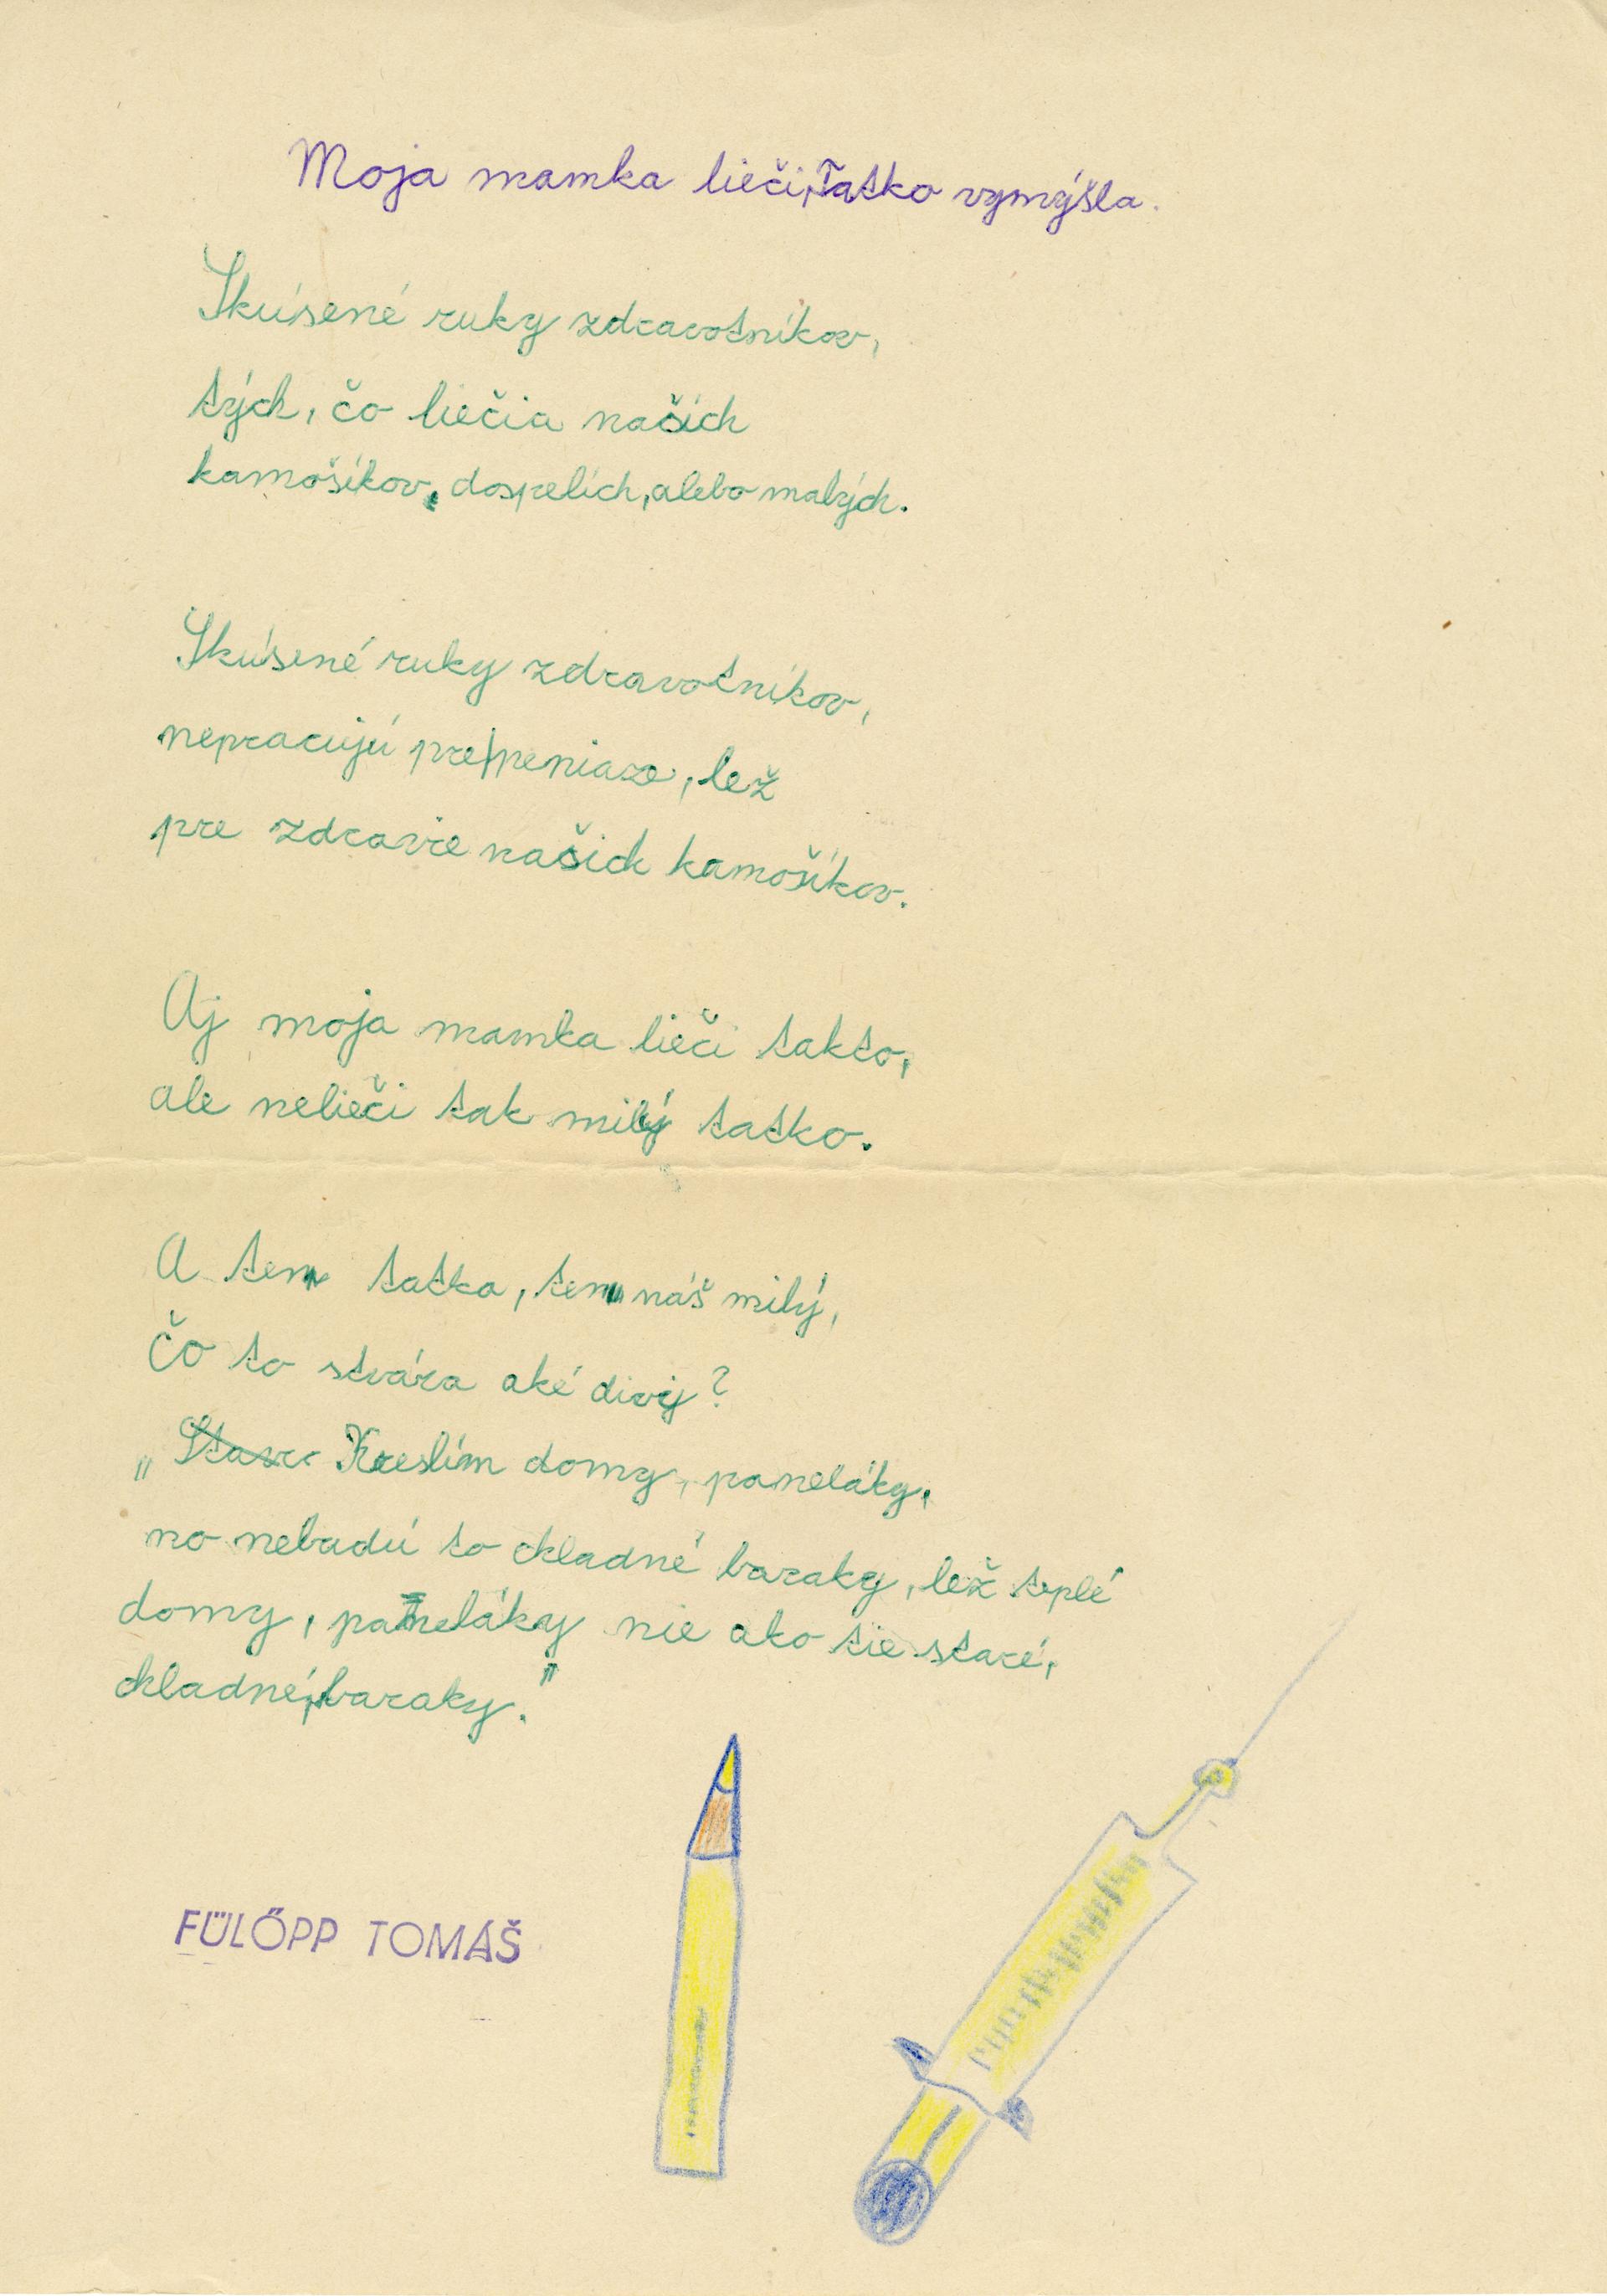 Moja mamka lieči, Tatko vymýšla.
Skúsené ruky zdravotníkov,
tých, čo liečia našich
kamošíkov, dospelích, alebo malých.
Skúsené ruky zdravotníkov,
nepracujú pre peniaze, lež
pre zdravie našich kamošíkov.
Aj moja mamka lieči takto,
ale nelieči tak milý tatko.
A ten tatka, ten náš milý,
Čo to stvára aké divy?
„Kreslím domy, paneláky,
no nebudú to chladné baraky, lež teplé
domy, paneláky nie ako tie staré,
chladné, baraky."
FÜLŐPP TOMÁŠ